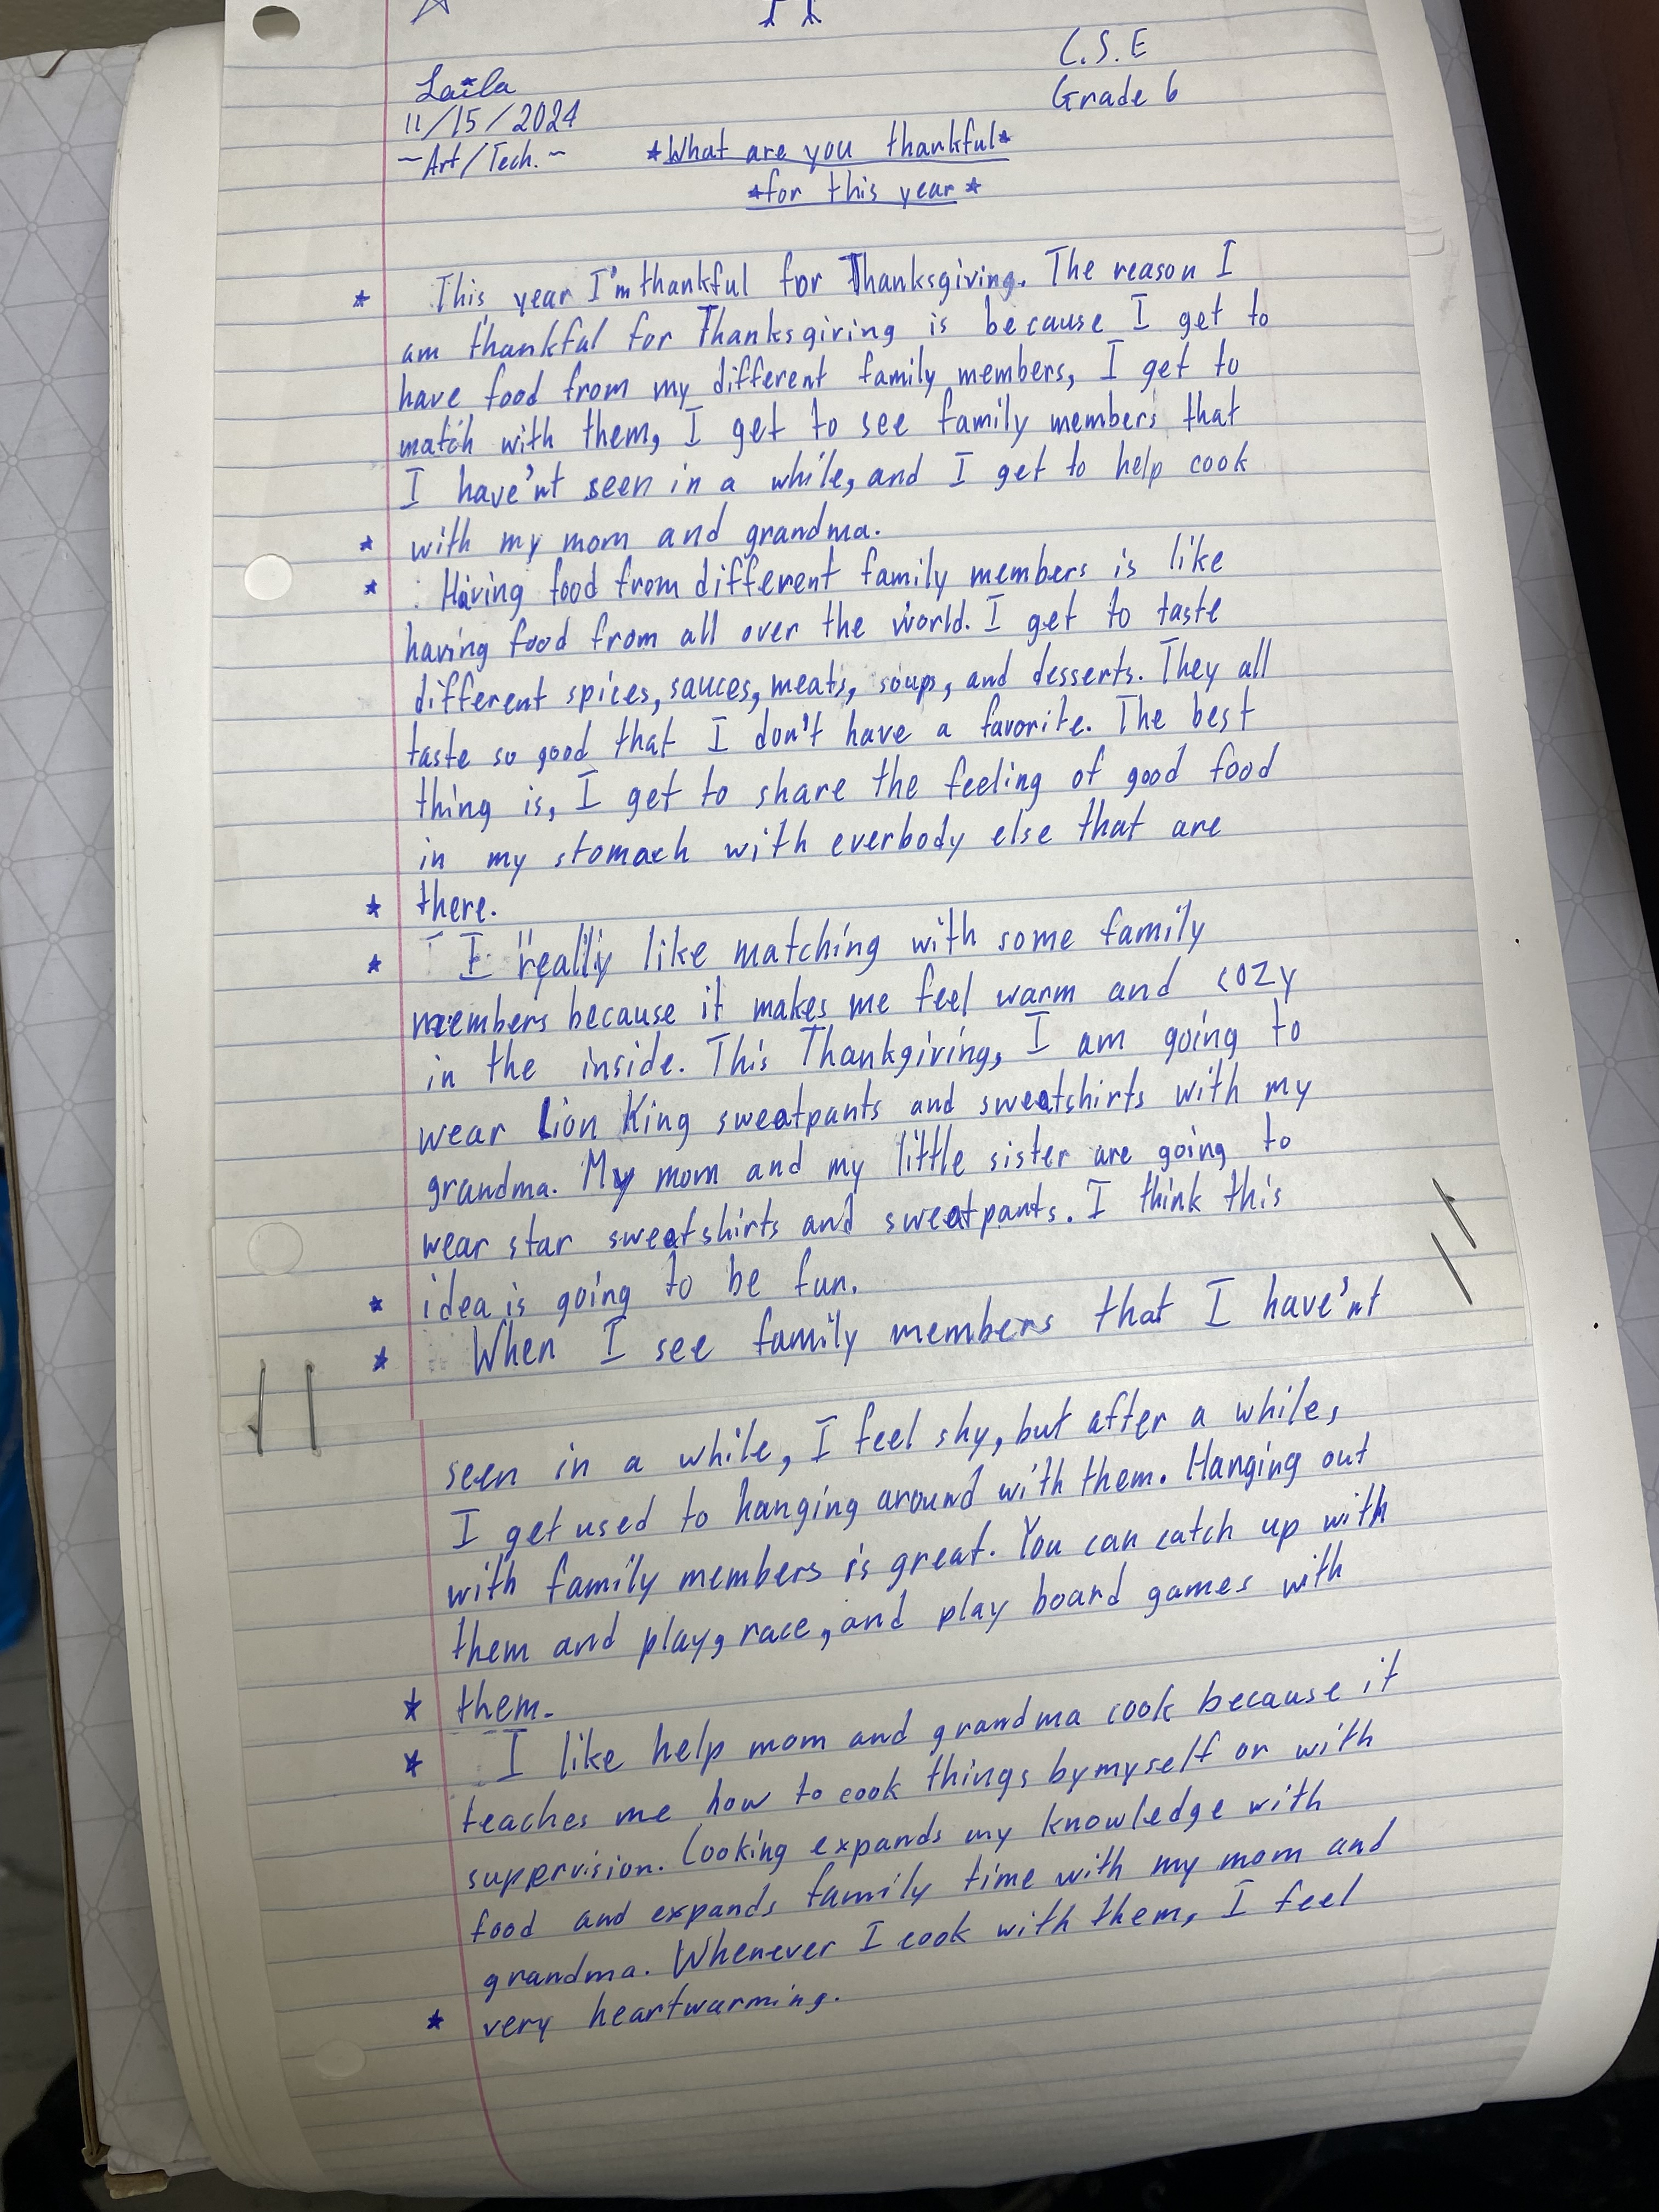 Laila
C.S.E
11/15/2024
Grade 6
~Art/Tech.~
*What are you thankful*
*for this year*
* This year I'm thankful for Thanksgiving. The reason I
am thankful for Thanksgiving is because I get to
have food from my different family members, I get to
match with them, I get to see family members that
I have'nt seen in a while, and I get to help cook
* with my mom and grandma.
* Having food from different family members is like
having food from all over the world. I get to taste
different spices, sauces, meats, soups, and desserts. They all
taste so good that I don't have a favorite. The best
thing is, I get to share the feeling of good food
in my stomach with everbody else that are
* there.
* I really like matching with some family
members because it makes me feel warm and cozy
in the inside. This Thankgiving, I am going to
wear Lion King sweatpants and sweatshirts with my
grandma. My mom and my little sister are going to
wear star sweatshirts and sweatpants. I think this
* idea is going to be fun.
* When I see family members that I have'nt
seen in a while, I feel shy, but after a while,
I get used to hanging around with them. Hanging out
with family members is great. You can catch up with
them and play, race, and play board games with
* them.
* I like help mom and grandma cook because it
teaches me how to cook things by myself or with
suppervision. Cooking expands my knowledge with
food and expands family time with my mom and
grandma. Whenever I cook with them, I feel
* very heartwarming.